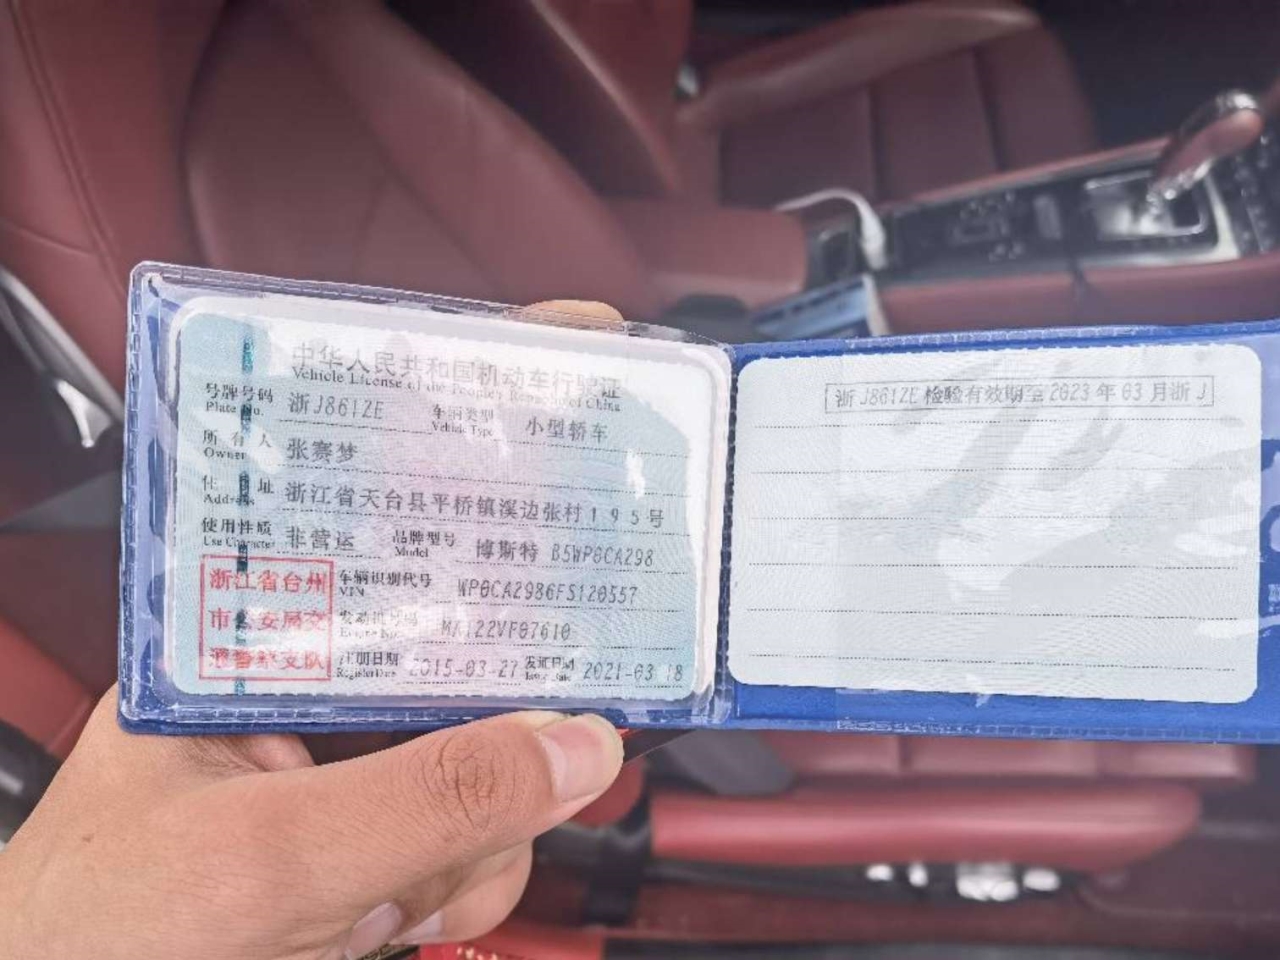 中华人民共和国机动车行驶证
Vehicle License of the People's Republic of China
号牌号码 浙J861ZE 车辆类型 小型轿车
Plate No. Vehicle Type
所有人 张赛梦
Owner
住址 浙江省天台县平桥镇溪边张村195号
Address
使用性质 非营运 品牌型号 博斯特 B5WP0CA298
Use Character Model
浙江省台州
市公安局交
通警察支队
车辆识别代号 WP0CA2986FS120557
VIN
发动机号码 MA122VF07610
Engine No.
注册日期 2015-03-27 发证日期 2021-03-18
Register Date Issue Date
浙J861ZE 检验有效期至2023年03月浙J